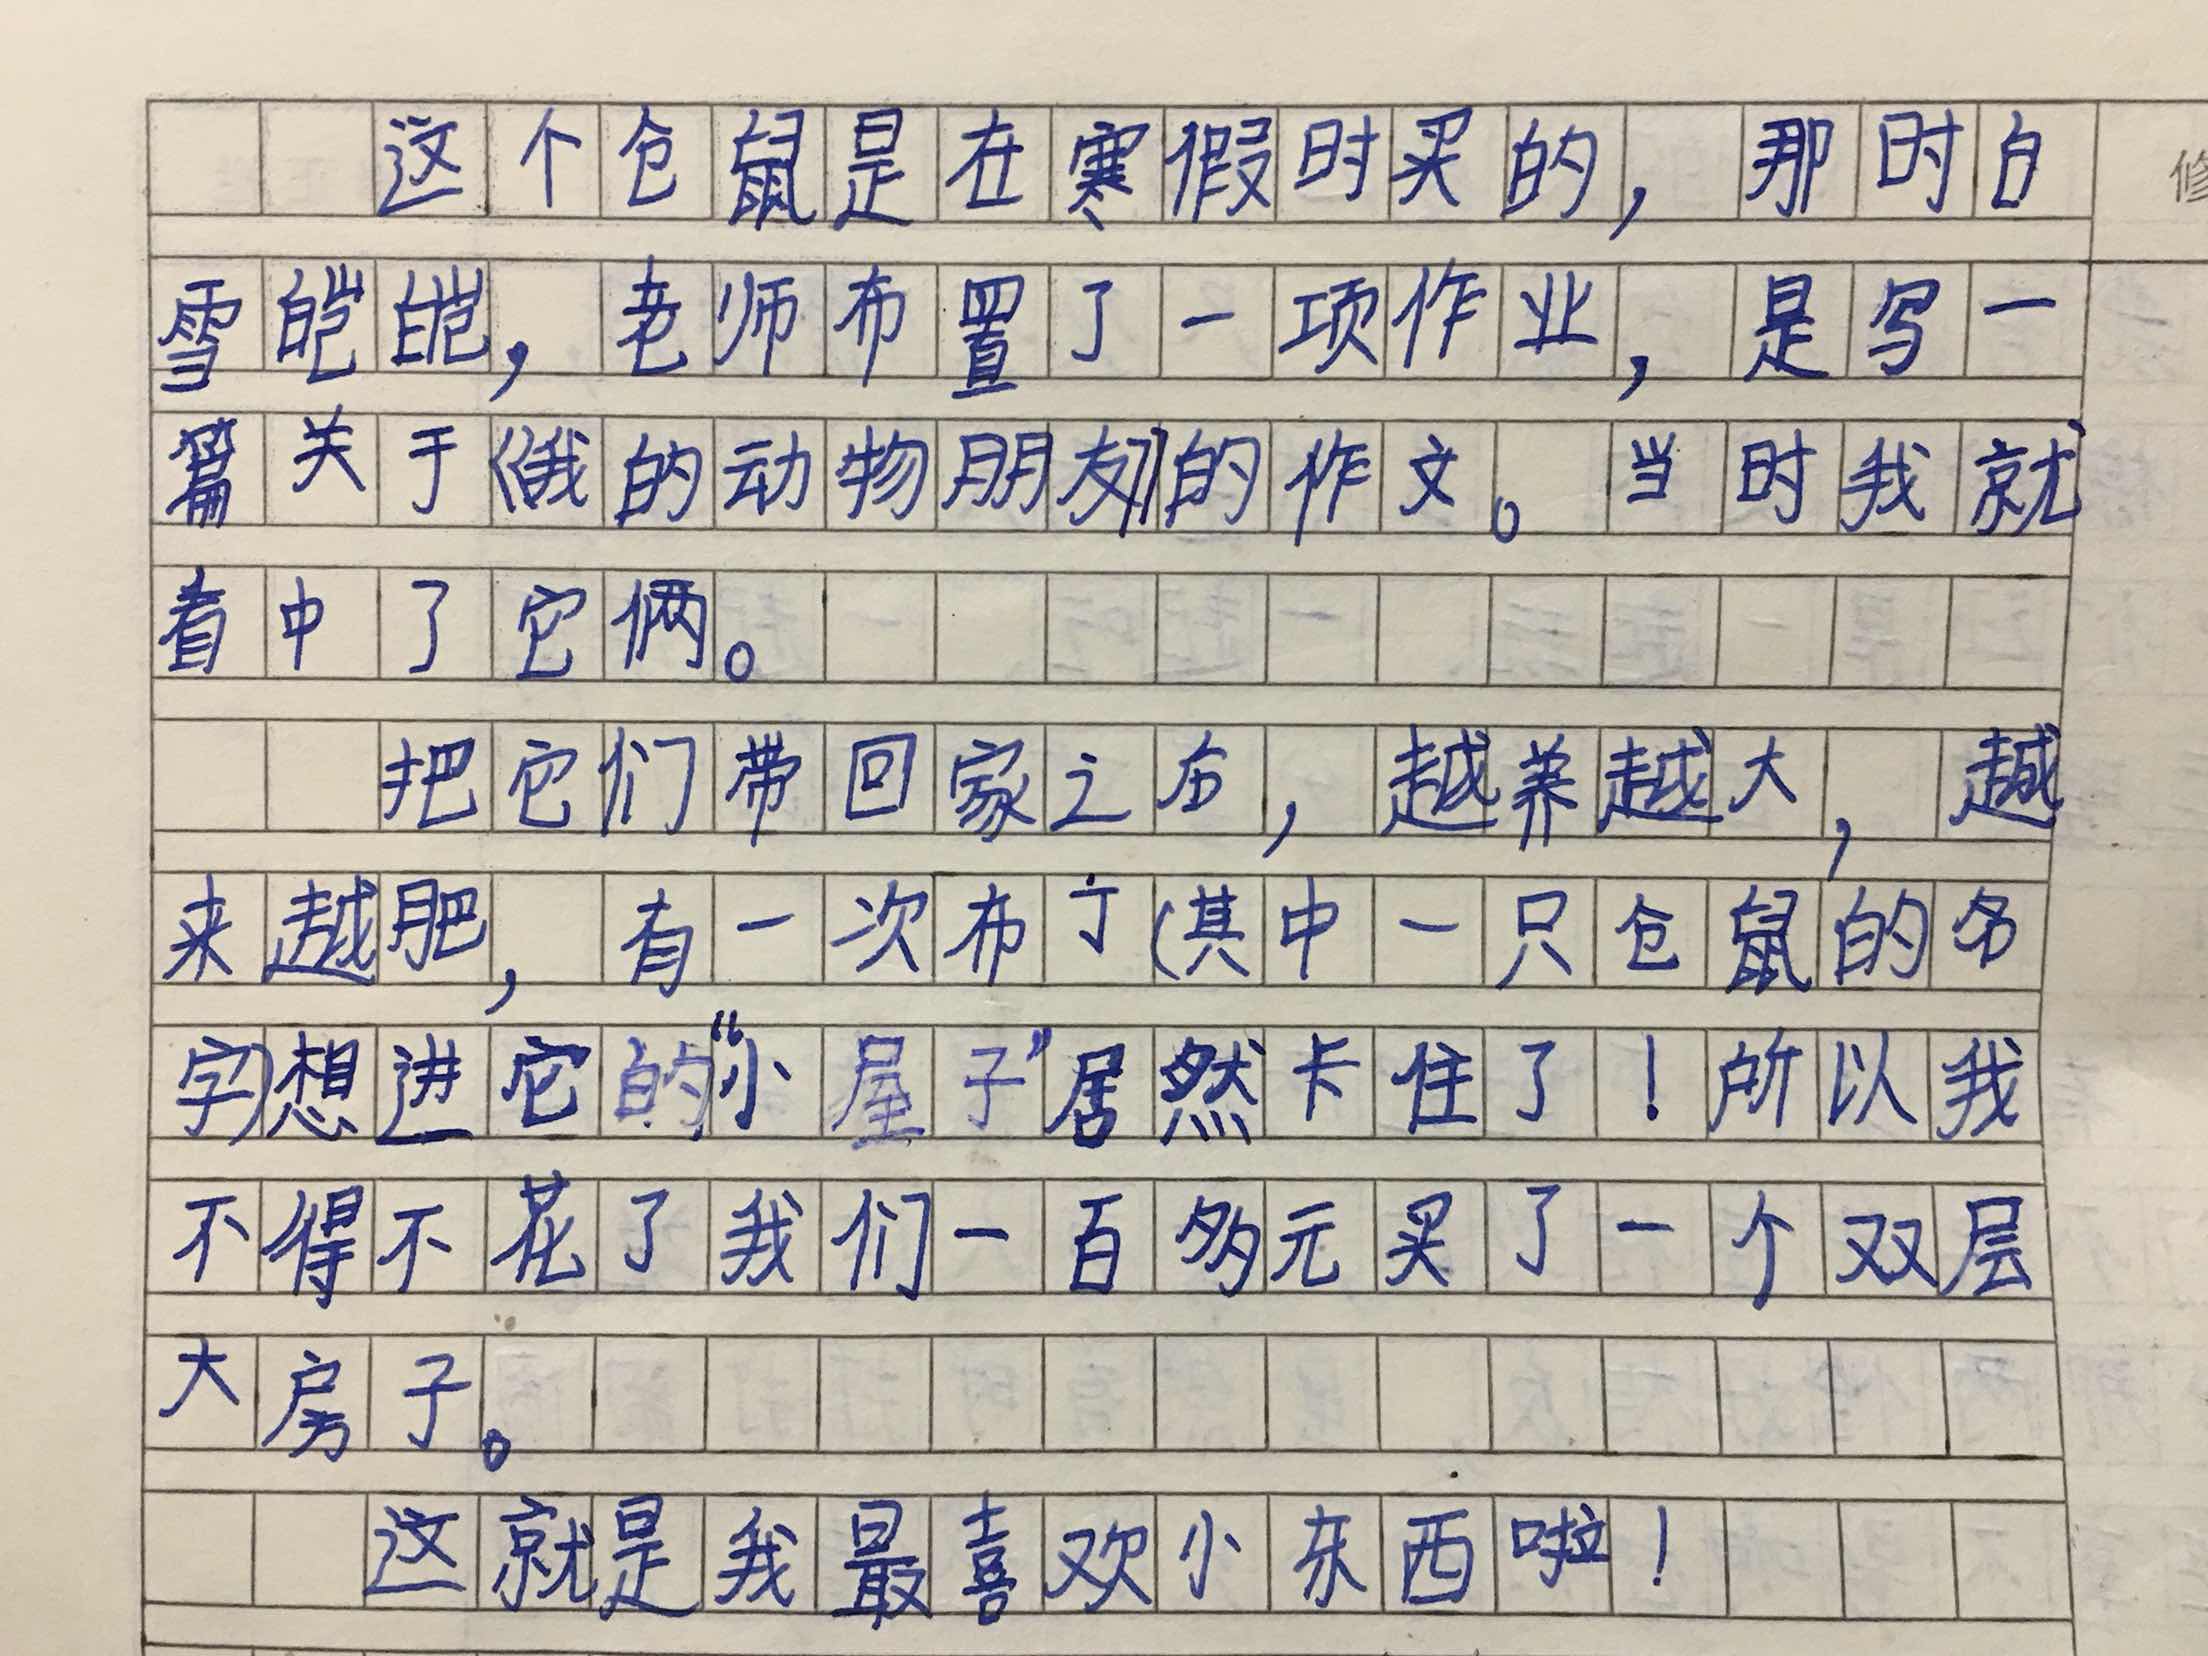 这个仓鼠是在寒假时买的，那时白
雪皑皑，老师布置了一项作业，是写一
篇关于《我的动物朋友》的作文。当时我就
看中了它俩。
把它们带回家之后，越养越大，越
来越肥，有一次布丁(其中一只仓鼠的名
字)想进它的“小屋子”居然卡住了！所以我
不得不花了我们一百多元买了一个双层
大房子。
这就是我最喜欢小东西啦！
修